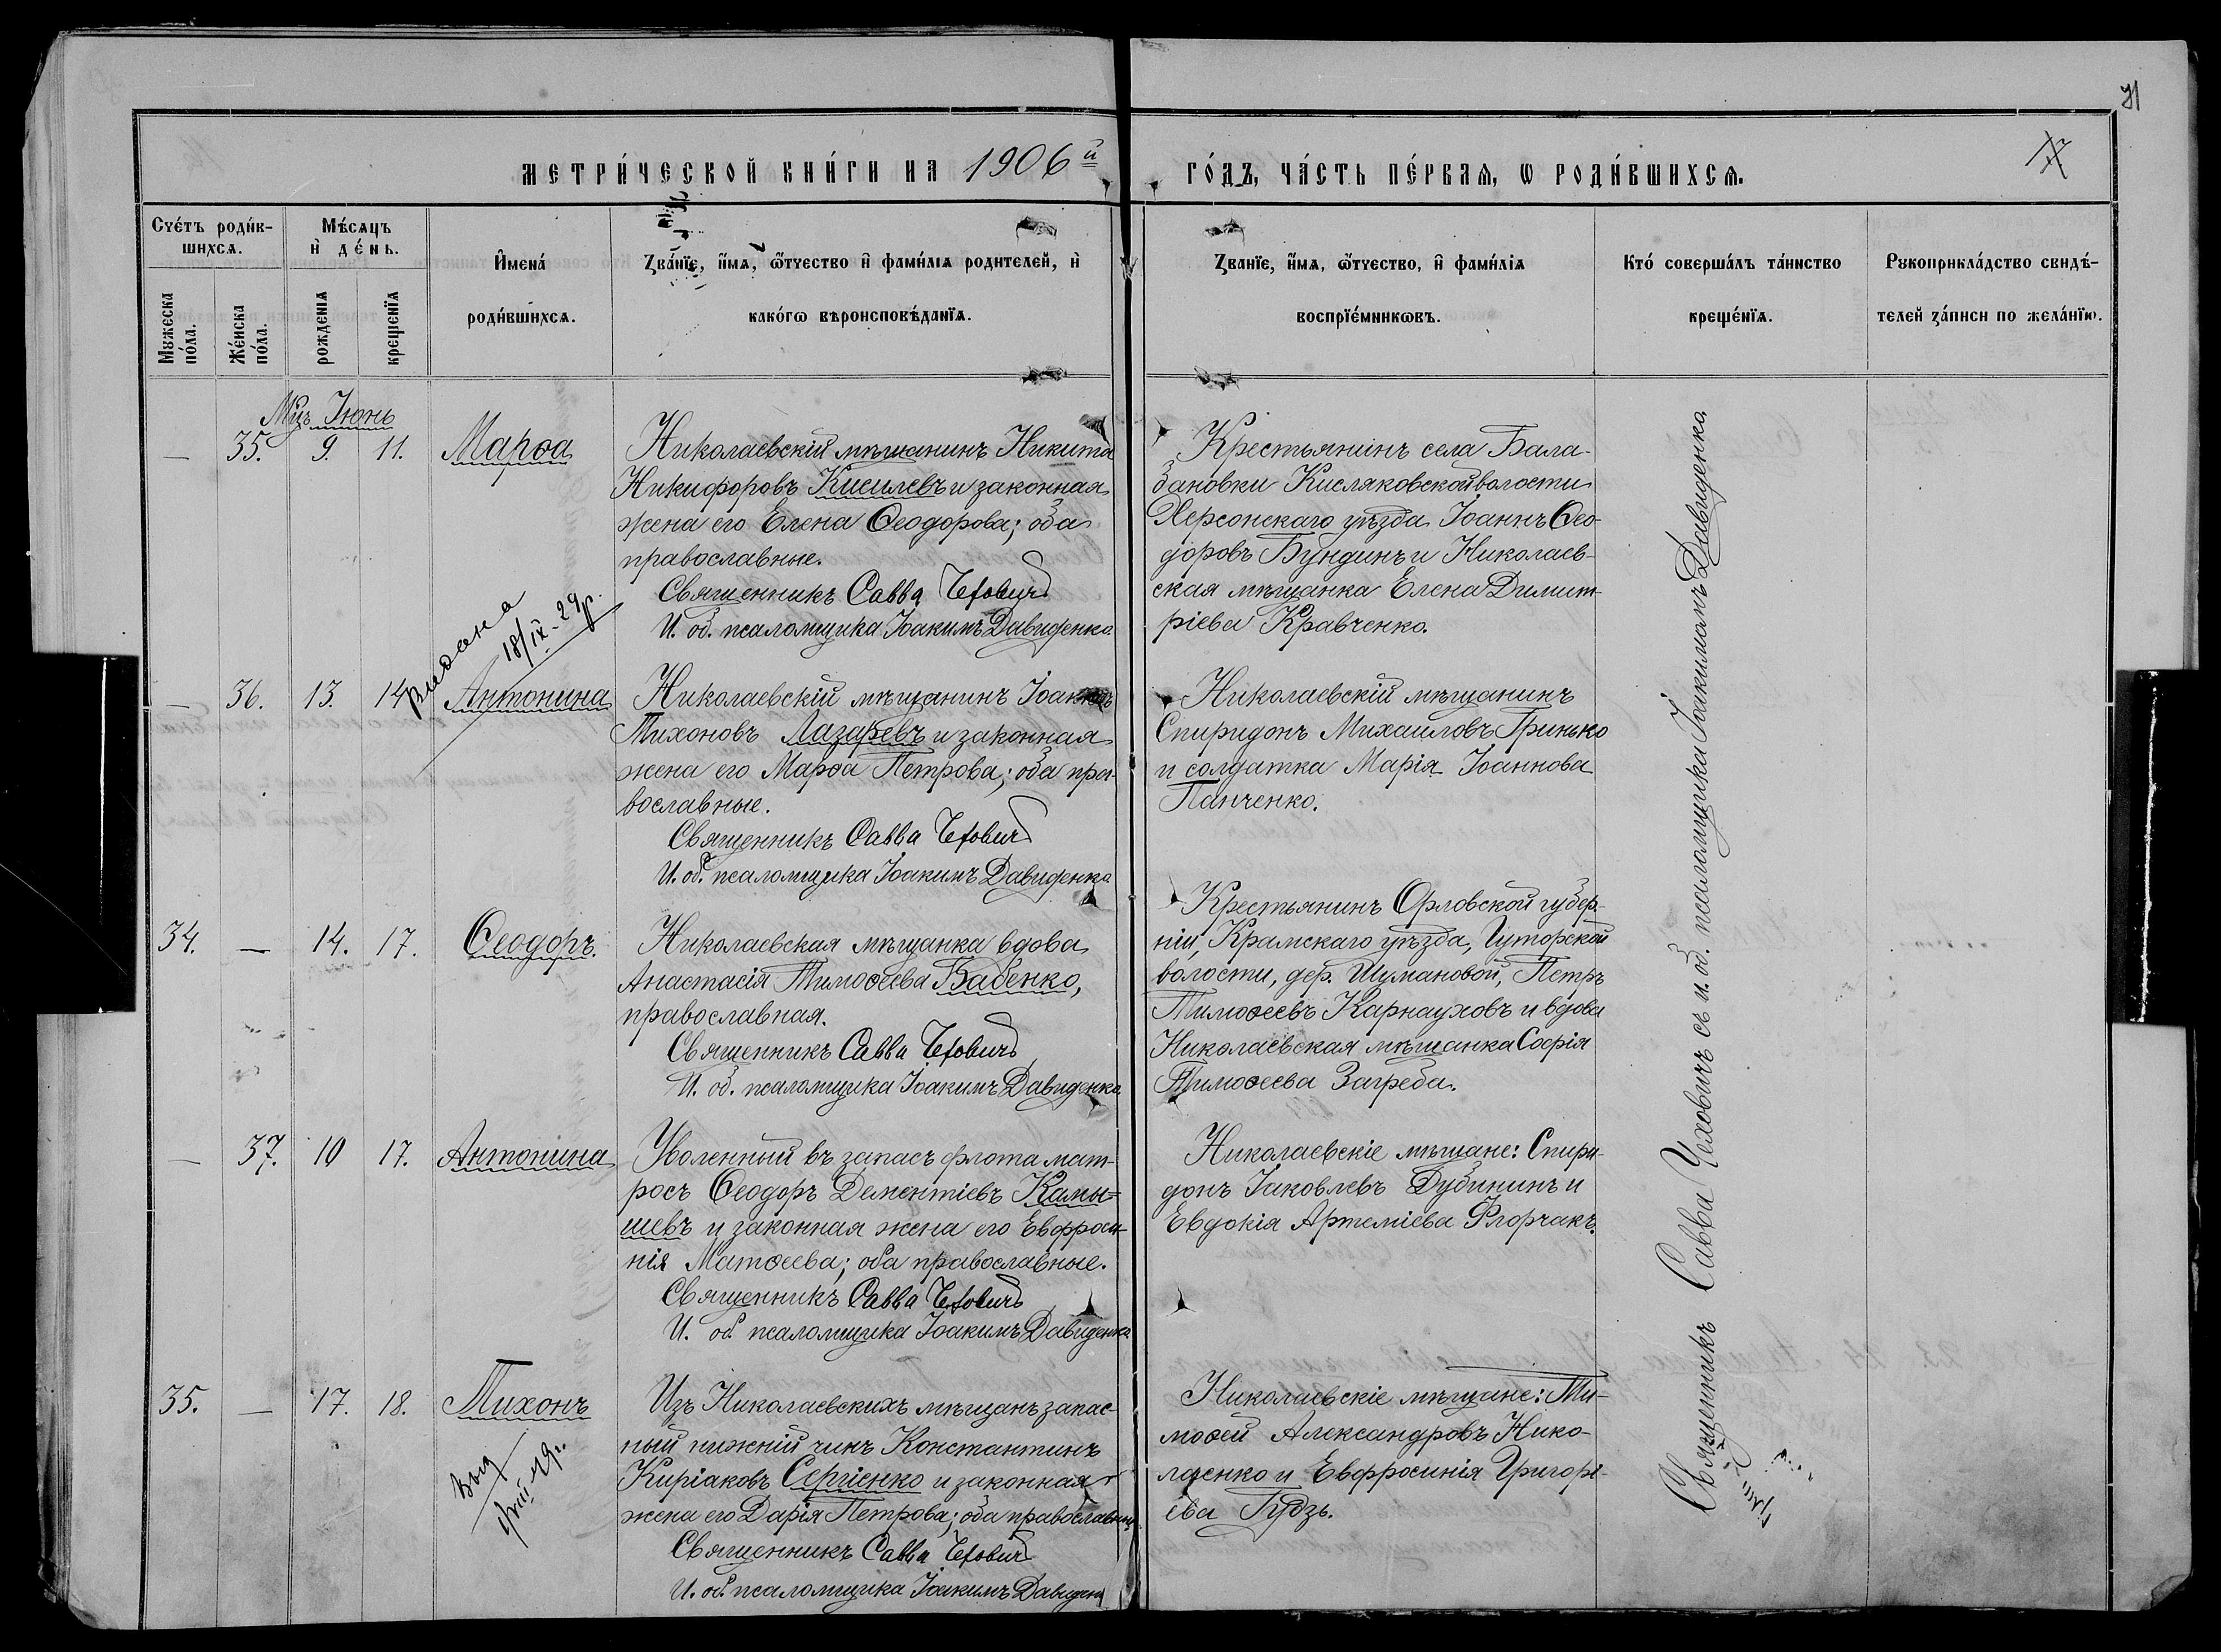 71
МЕТРИ́ЧЕСКОЙ КНИ́ГИ НА 1906й ГО́ДЪ, ЧА́СТЬ ПЕ́РВАѦ, Ѡ РОДИ́ВШИХСѦ.
Счетъ роди́вшихсѧ.
Мꙋжеска по́ла.
Же́нска по́ла.
Мѣ́сѧцъ и҆ де́нь.
рожденїѧ
крещенїѧ
И҆мена́ роди́вшихсѧ.
Зва́нїе, и҆́мѧ, ѻ҆́тчество и҆ фами́лїѧ родителей, и҆
како́гѡ вѣроисповѣ́данїѧ.
Званїе, и҆́мѧ, ѻ҆́тчество, и҆ фами́лїѧ
воспрїе́мникѡвъ.
Кто́ соверша́лъ та́инство
креще́нїѧ.
Рꙋкоприкла́дство свидѣ́-
телей за́писи по жела́нїю.
Мцъ Іюнь
— 35. 9. 11. Марѳа
Николаевскій мѣщанинъ Никита
Никифоровъ Киселевъ и законная
жена его Елена Ѳеодорова; оба
православные.
Священникъ Савва Чехович
И. об. псаломщика Іоакимъ Давиденко.
Крестьянинъ села Бала-
бановки Кисляковской волости
Херсонскаго уѣзда Іоаннъ Ѳео-
доровъ Бундинъ и Николаев-
ская мѣщанка Елена Димит-
ріева Кравченко.
видана
18/IX-29р.
— 36. 13. 14 Антонина
Николаевскій мѣщанинъ Іоаннъ
Тихоновъ Лазаревъ и законная
жена его Марѳа Петрова; оба пра-
вославные.
Священникъ Савва Чехович
И. об. псаломщика Іоакимъ Давиденко
Николаевскій мѣщанинъ
Спиридонъ Михаиловъ Гринько
и солдатка Марія Іоаннова
Панченко.
34. — 14. 17. Ѳеодоръ.
Николаевская мѣщанка вдова
Анастасія Тимоѳеева Бабенко,
православная.
Священникъ Савва Чехович
И. об. псаломщика Іоакимъ Давиденко
Крестьянинъ Орловской губер-
ніи, Крамскаго уѣзда, Гуторской
волости, дер. Шумановой, Петръ
Тимоѳеевъ Карнауховъ и вдова
Николаевская мѣщанка Софія
Тимоѳеева Загреба.
— 37. 10 17. Антонина
Уволенный въ запасъ флота мат-
росъ Ѳеодоръ Дементіевъ Камы-
шевъ и законная жена его Евфроси-
нія Матѳеева; оба православные.
Священникъ Савва Чехович
И. об. псаломщика Іоакимъ Давиденко
Николаевскіе мѣщане: Спири-
донъ Іаковлевъ Дубининъ и
Евдокія Артеміева Флорчакъ.
35. — 17. 18. Тихонъ
Изъ Николаевскихъ мѣщанъ запас-
ный нижній чинъ Константинъ
Киріаковъ Сергіенко и законная
жена его Дарія Петрова; оба православные
Священникъ Савва Чехович
И. об. псаломщика Іоакимъ Давиден
Николаевскіе мѣщане: Ти-
моѳей Александровъ Нико-
лаенко и Евфросинія Григорі-
ева Гудзь.
Священникъ Савва Чеховичъ съ и. об. псаломщика Іоакимомъ Давиденко